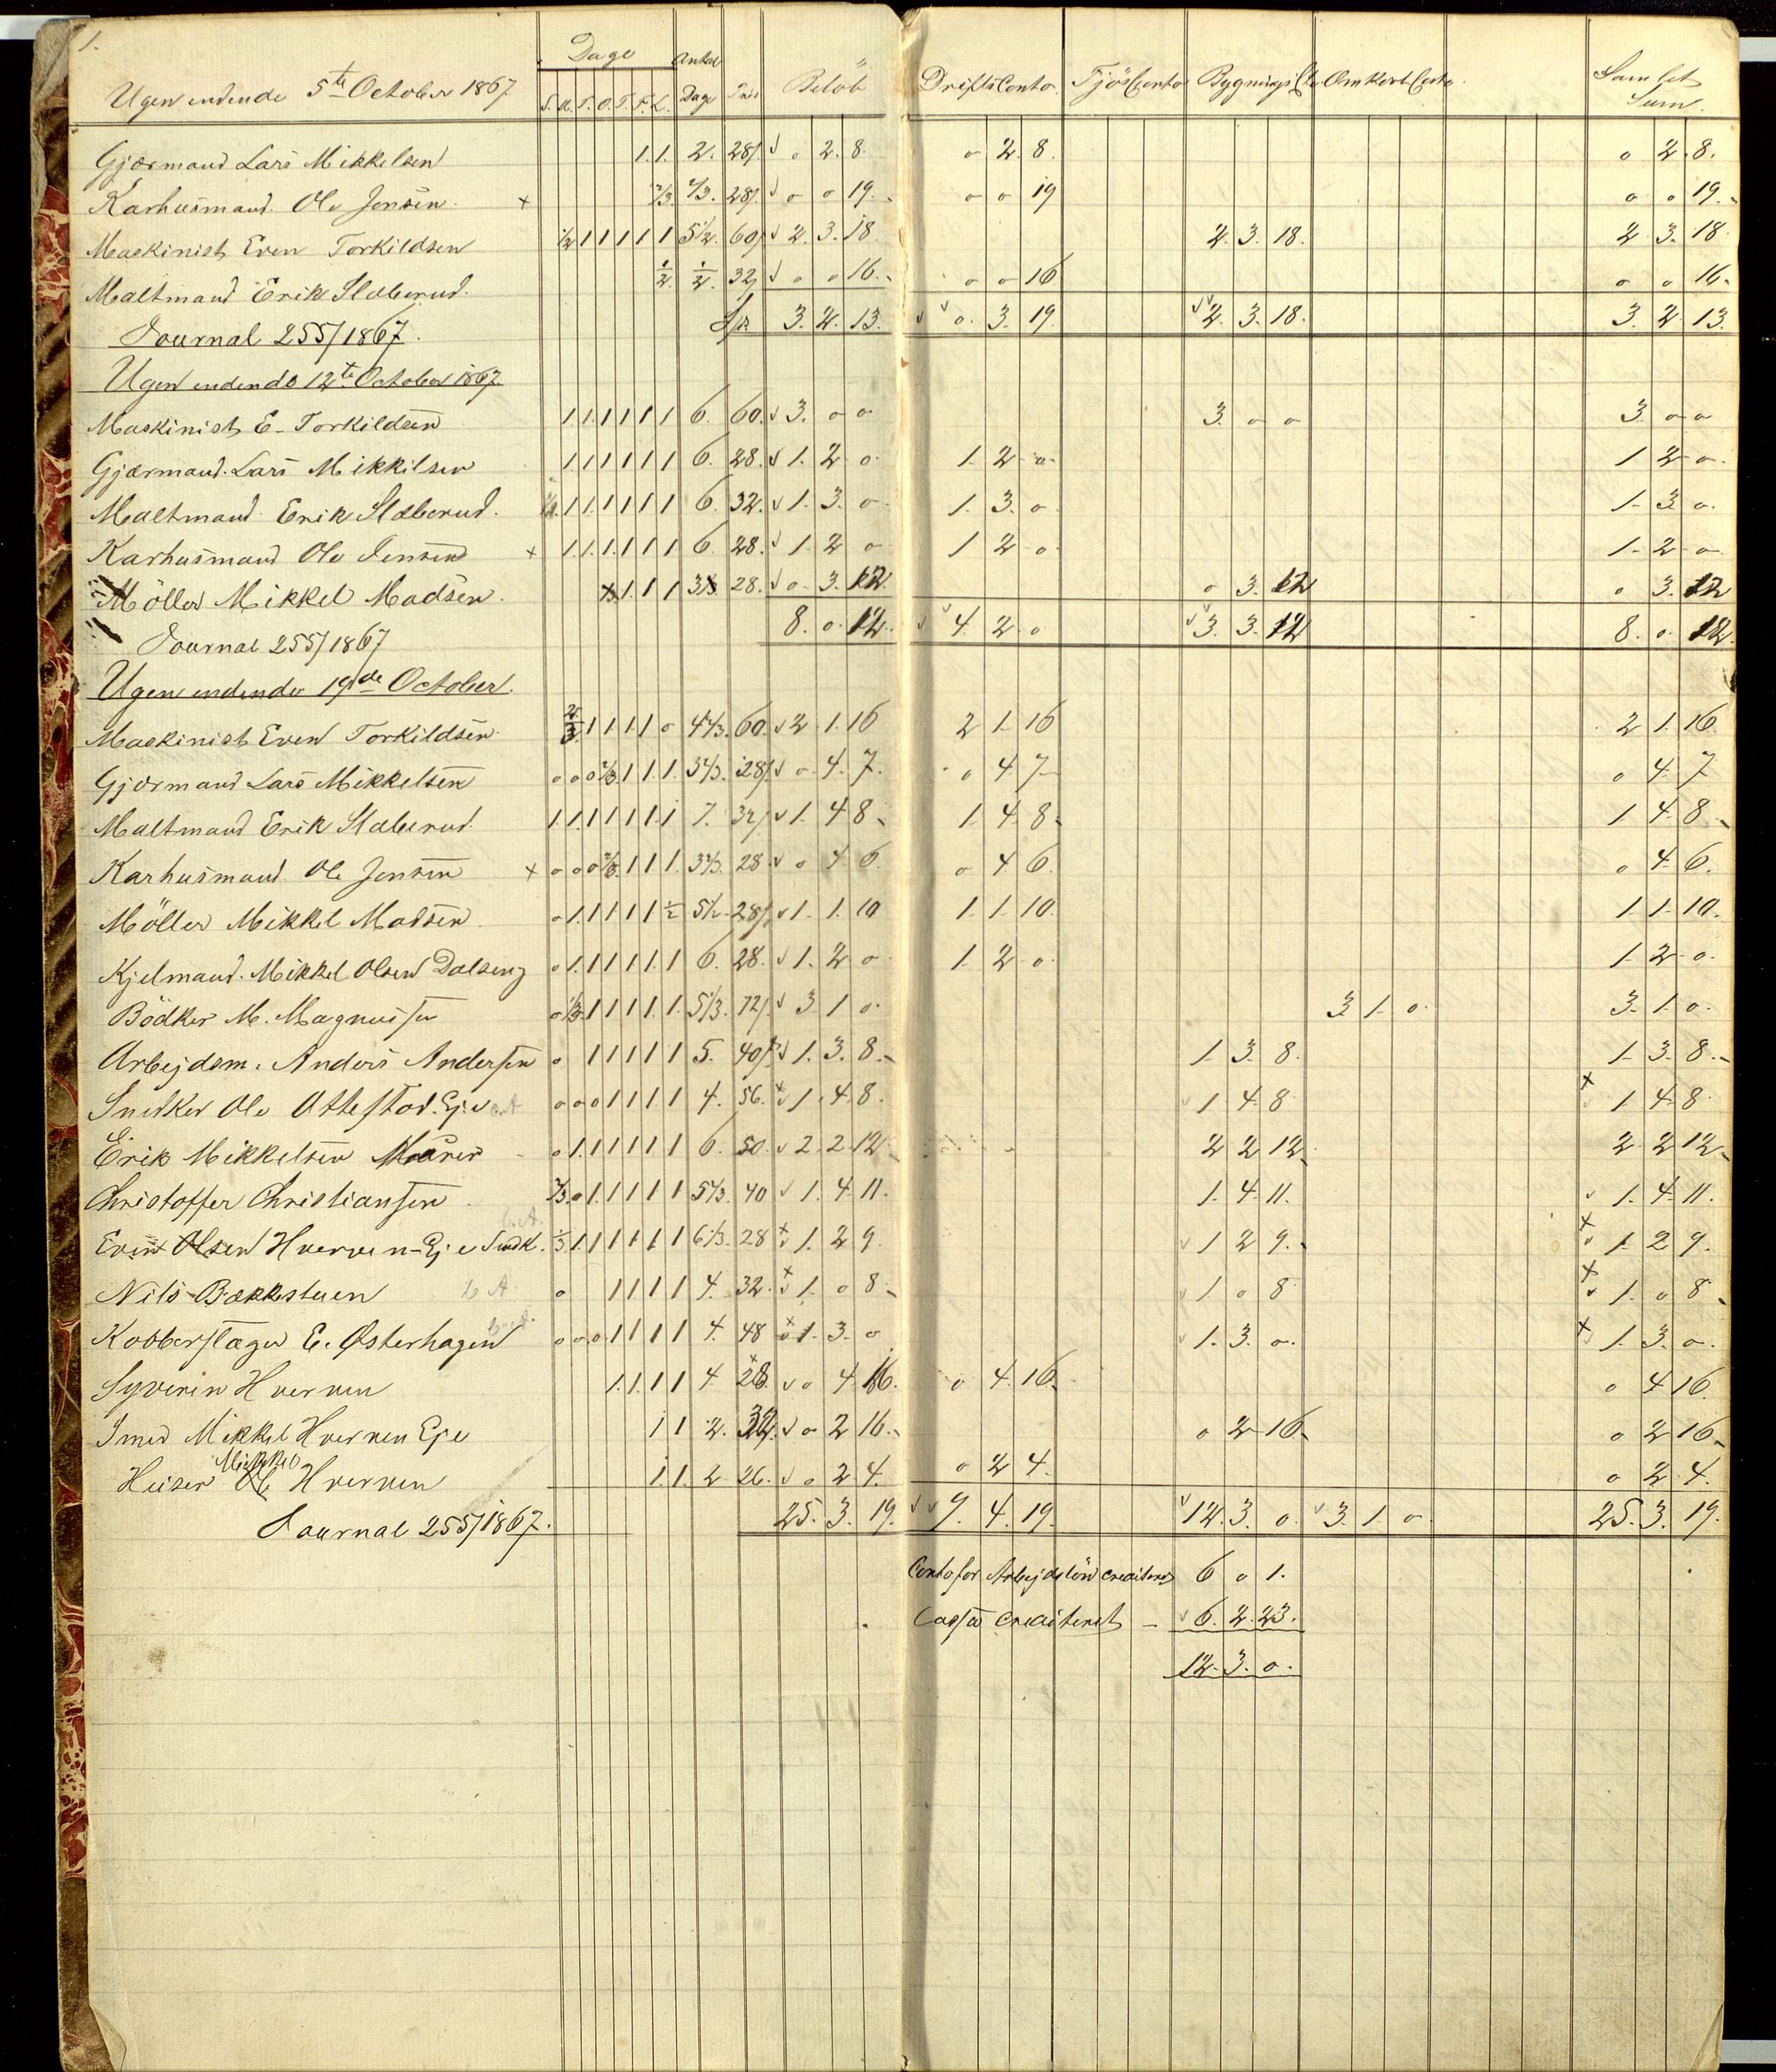 1.
Ugen endende 5te October 1867. Dage Antal Dage Pris Belöb Drifts Conto Fjös Conto Bygnings Cto Omkost Conto Samlet Sum
S. M. T. O. T. F. L.
Gjærmand Lars Mikkelsen 1. 1. 2. 28 o 2. 8. o 2. 8. o 2. 8.
Karhusmand Ole Jensen x 2/3 2/3. 28 o o 19. o o 19 o o 19.
Maskinist Even Torkildsen 1/2 1 1 1 1 1 5 1/2. 60 2. 3. 18. 2. 3. 18. 2. 3. 18.
Maltmand Erik Staberud. 1/2 1/2. 32 o o 16. o o 16 o o 16.
Journal 255/1867. Sp 3. 2. 13. o. 3. 19. 2. 3. 18. 3. 2. 13.
Ugen endende 12te October 1867
Maskinist E. Torkildsen 1 1 1 1 1 1 6. 60. 3. o o 3. o o 3. o o
Gjærmand Lars Mikkelsen 1 1 1 1 1 1 6. 28. 1. 2 o 1. 2 o 1 2 o
Maltmand Erik Staberud. 1 1 1 1 1 1 6. 32. 1. 3. o 1. 3. o 1. 3 o.
Karhusmand Ole Jensen x 1 1 1 1 1 1 6. 28. 1 2 o 1 2 o 1. 2 o
Möller Mikkel Madsen. 1 1 1 3 1/3 28. o. 3. 12. o 3. 12 o 3. 12
Journal 255/1867 8. o. 12. 4. 2. o 3. 3. 12 8. o. 12.
Ugen endende 19de October.
Maskinist Even Torkildsen 2/3 1 1 1 1 o 4 2/3. 60. 2 1. 16 2 1. 16 2 1. 16.
Gjærmand Lars Mikkelsen o o o 2/3 1 1 1. 3 2/3. 28 o. 4. 7. o 4 7 o 4. 7
Maltmand Erik Staberud. 1 1 1 1 1 1 1 7. 32 1. 4 8 1. 4. 8 1 4. 8
Karhusmand Ole Jensen x o o o 2/3 1 1 1. 3 2/3. 28 o 4 6. o 4 6. o 4. 6.
Möller Mikkel Madsen. o 1 1 1 1 1 1/2 5 1/2. 28 1. 1. 10 1. 1. 10. 1. 1. 10.
Kjelmand. Mikkel Olsen Dalseng o 1 1 1 1 1 1 6. 28. 1. 2 o 1. 2 o. 1. 2 o.
Bödker M. Magnussen o 1/3 1 1 1 1 1. 5 1/3. 72 3 1 o. 3 1. o. 3. 1. o.
Arbejdsm. Anders Andersen o 1 1 1 1 1 5. 40 1. 3. 8. 1. 3. 8. 1. 3. 8.
Snedker Ole Ottestad Eje o o o 1 1 1 1 4. 56. x 1. 4. 8. 1 4. 8 x 1 4. 8.
Erik Mikkelsen Murer o 1 1 1 1 1 1 6. 50. 2. 2. 12 2 2 12 2 2 12
Christoffer Christiansen 2/3 o 1 1 1 1 1 5 2/3. 40 1. 4. 11. 1. 4. 11. 1. 4. 11.
Even Olsen Hverven-Eje Snedk. 1/3 1 1 1 1 1 1 6 1/3. 28 x 1. 2 9. 1 2 9. x 1 2 9.
Nils Bækkestuen o 1 1 1 1 4. 32. x 1. o 8 1 o 8 x 1. o 8.
Kobberslager E. Østerhagen o o o 1 1 1 1 4. 48 x 1. 3. o 1. 3. o. x 1. 3. o.
Syverin Hverven 1 1 1 1 4 28. o 4 16. o 4. 16. o 4 16.
Smed Mikkel Hverven Eje 1 1 2. 32. o 2 16. o 2 16. o 2 16.
Heiser Mikkel Hverven 1. 1. 2 26. o 2 4. o 2 4. o 2. 4.
Journal 255/1867. 25. 3. 19. 9. 4. 19. 12. 3. o. 3. 1. o 25. 3. 19.
Conto for Arbejdslön crediteres 6 o 1.
Cassa crediteret - 6. 2. 23.
12. 3. o.